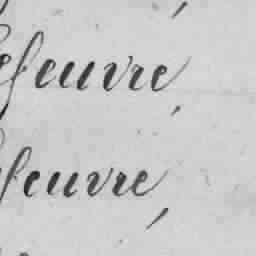 Lefeuvre
Lefeuvre,